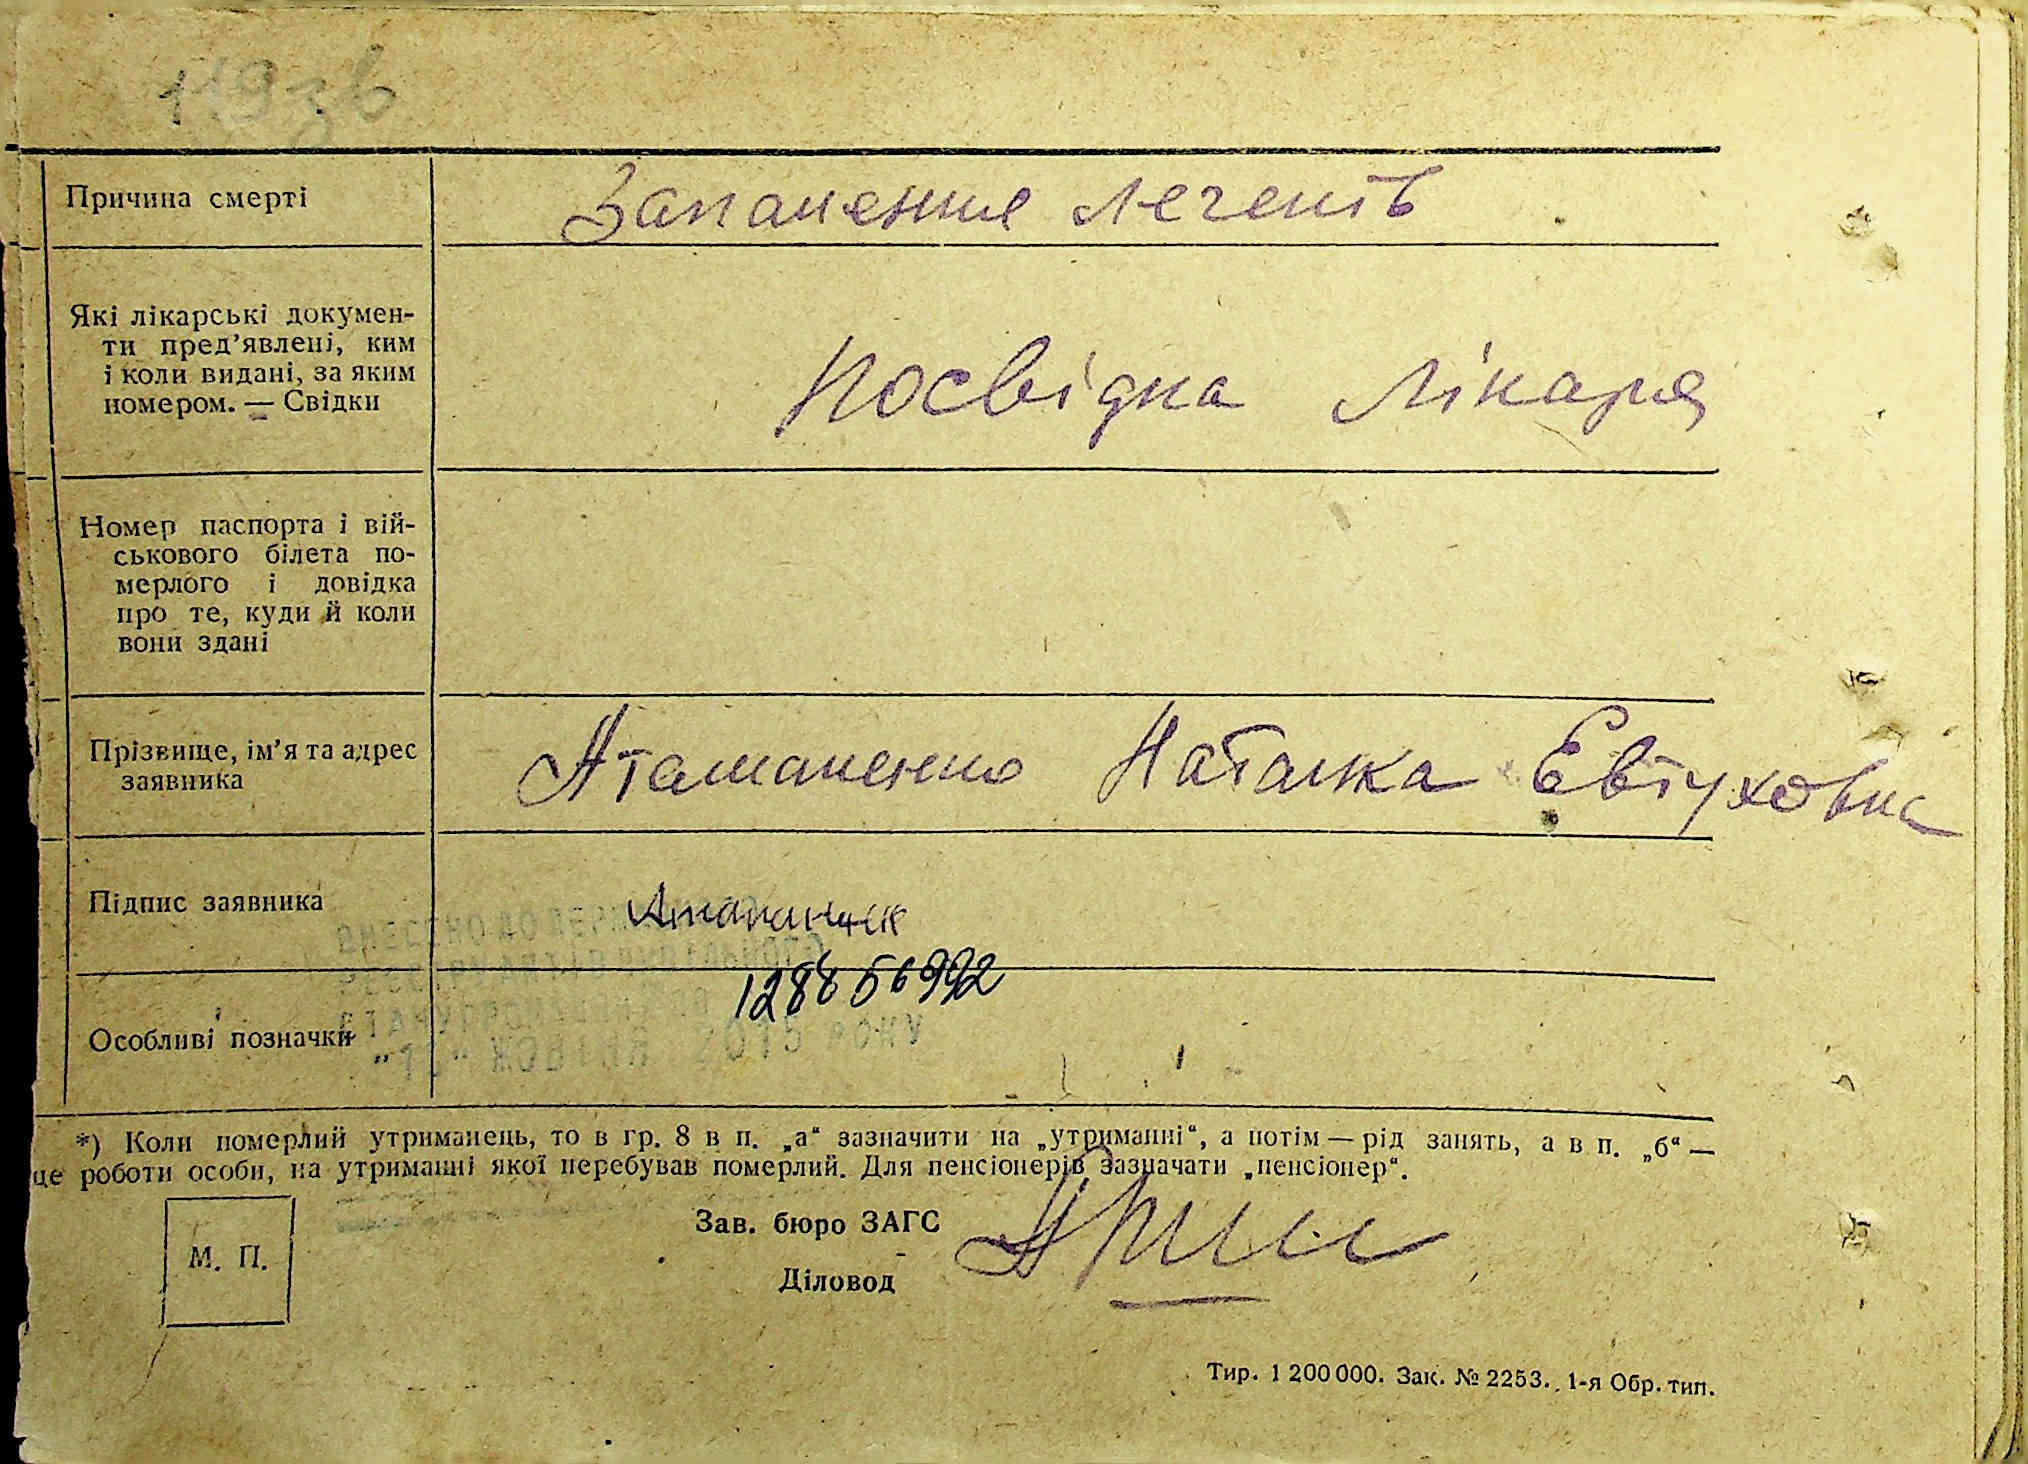 119зв
Причина смерті
Запалення легенів
Які лікарські докумен-
ти пред’явлені, ким
і коли видані, за яким
номером. — Свідки
Посвідка лікаря
Номер паспорта і вій-
ськового білета по-
мерлого і довідка
про те, куди й коли
вони здані
Прізвище, ім’я та адрес
заявника
Атаманенко Наталка Евтуховна
Підпис заявника
ВНЕСЕНО ДО ДЕРЖАВНОГО
128856992
Особливі позначки
ЖОВТНЯ 2015 РОКУ
*) Коли померлий утриманець, то в гр. 8 в п. „а“ зазначити на „утриманні“, а потім — рід занять, а в п. „б“ —
це роботи особи, на утриманні якої перебував померлий. Для пенсіонерів зазначати „пенсіонер“.
М. П.
Зав. бюро ЗАГС
Діловод
Тир. 1 200 000. Зак. № 2253. 1-я Обр. тип.